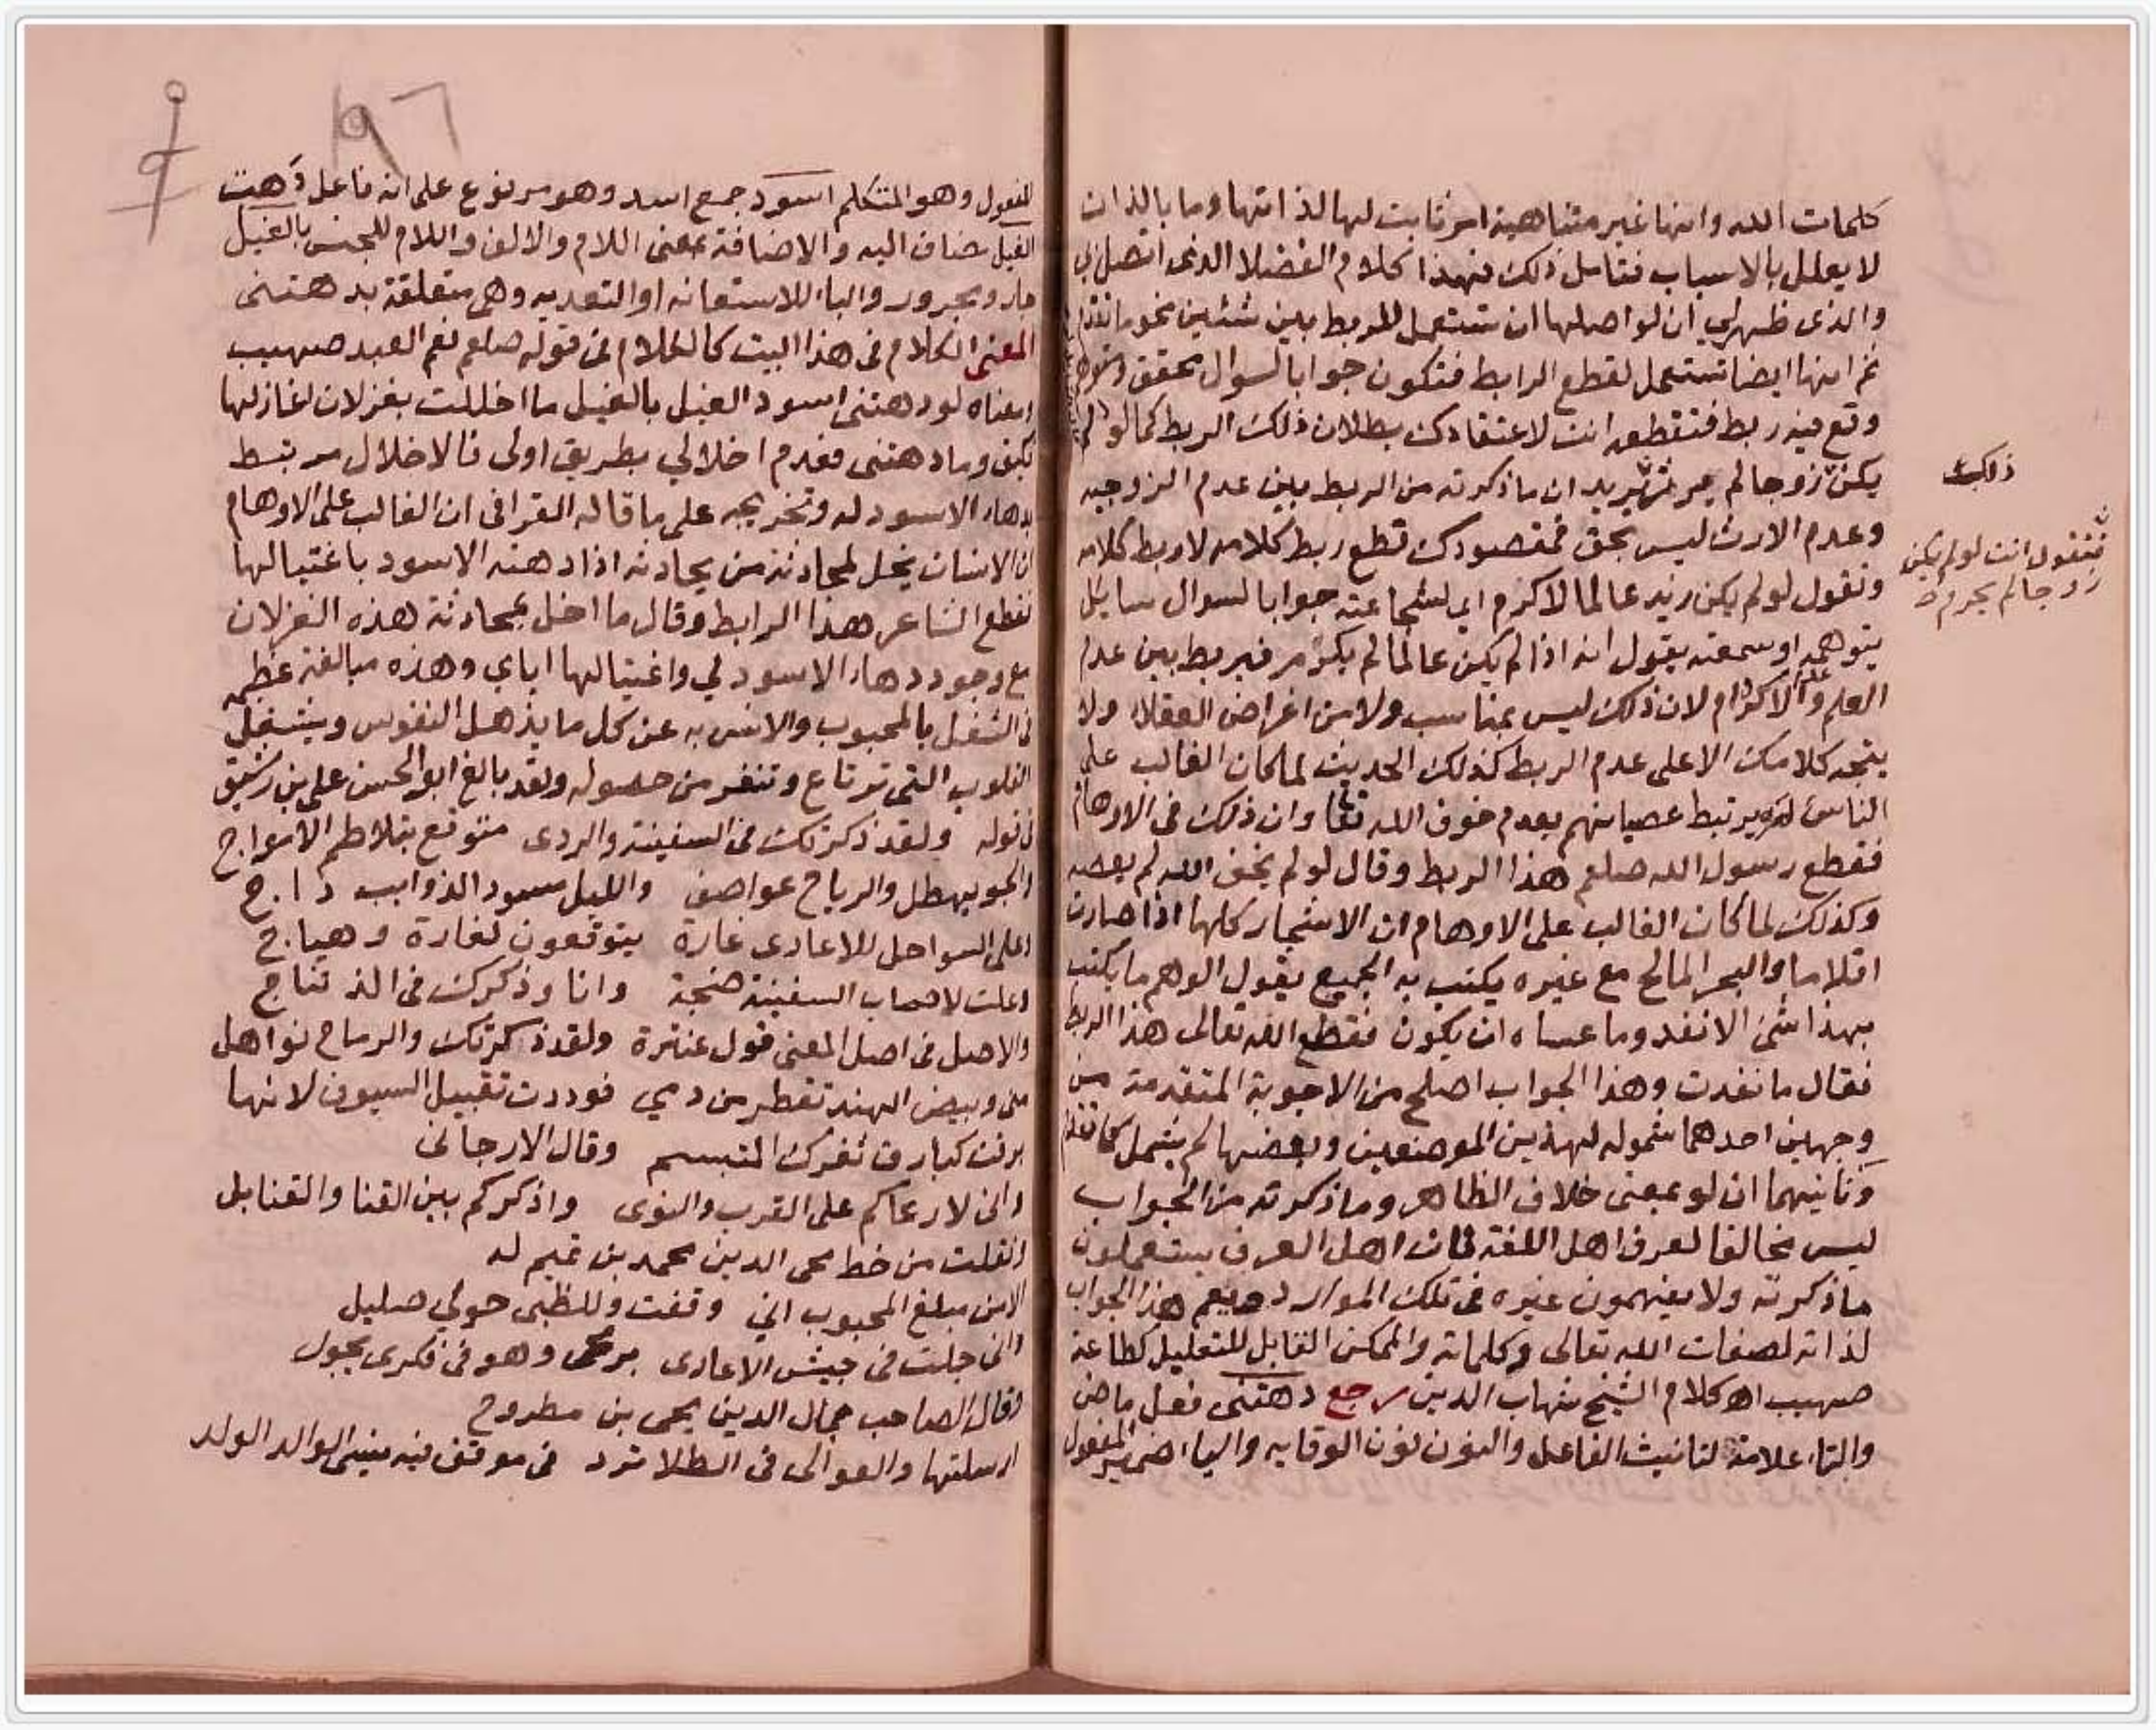 كلمات الله وانها غير متناهية امر ثابت لها لذاتها وما بالذات
لا يعلل بالاسباب فتامل ذلك فهذا كلام الفضلا الذى اتصل بى
والذى ظهر لي ان لو اصلها ان تستعمل للربط بين شئين نحو ما تقدم
ثم انها ايضا تستعمل لقطع الرابط فتكون جوابا لسوال محقق او متوهم
وقع فيه ربط فتقطعه انت لاعتقادك بطلان ذلك الربط كما لو
يكن زوجا لم يرث تريد ان ما ذكرته من الربط بين عدم الزوجيه
ذلك
وعدم الارث ليس بحق فمقصودك قطع ربط كلامه لا ربط كلامه
فتقول انت لو لم يكن
زوجا لم يحرم
وتقول لو لم يكن زيد عالما لاكرم اي لشجاعته جوابا لسوال سايل
يتوهم او سمعته يقول انه اذا لم يكن عالما لم يكرم فيربط بين عدم
العلم وعدم الاكرام لان ذلك ليس بمناسب ولا من اغراض العقلا ولا
يتجه كلامك الا على عدم الربط كذلك الحديث لما كان الغالب على
الناس ان يرتبط عصيانهم بعدم خوف الله تعا وان ذلك فى الاوهام
فقطع رسول الله صلعم هذا الربط وقال لو لم يخف الله لم يعصه
وكذلك لما كان الغالب على الاوهام ان الاشجار كلها اذا صارت
اقلاما والبحر المالح مع غيره يكتب به الجميع يقول الوهم ما يكتب
بهذا شئ الا نفد وما عساه ان يكون فقطع الله تعالى هذا الربط
فقال ما نفدت وهذا الجواب اصلح من الاجوبة المتقدمة من
وجهين احدهما شموله لهذين الموضعين وبعضها لم يشمل كما تقدم
وثانيهما ان لو بمعنى خلاف الظاهر وما ذكرته من الجواب
ليس مخالفا لعرف اهل اللغة فان اهل العرف يستعملون
ما ذكرته ولا يفهمون غيره فى تلك الموارد ويعم هذا الجواب
لذاته لصفات الله تعالى وكلماته والممكن القابل للتعليل كطاعة
صهيب اه كلام الشيخ شهاب الدين رجع دهتنى فعل ماض
والتاء علامة لتانيث الفاعل والنون نون الوقايه والياء ضمير المفعول
المفعول وهو المتكلم اسود جمع اسد وهو مرفوع على انه فاعل دهت
الغيل مضاف اليه والاضافة بمعنى اللام والالف واللام للجنس بالغيل
جار ومجرور والباء للاستعانه او التعديه وهى متعلقة بدهتنى
المعنى الكلام فى هذا البيت كالكلام فى قوله صلعم نعم العبد صهيب
ومعناه لو دهتنى اسود الغيل بالغيل ما اخللت بغزلان اغازلها
فكيف وما دهتنى فعدم اخلالي بطريق اولى فالاخلال مرتبط
بدهاء الاسود له وتخريجه على ما قاله القرافى ان الغالب على الاوهام
ان الانسان يخل لمحادثة من يحادثه اذا دهته الاسود باغتيالها
فقطع الشاعر هذا الرابط وقال ما اخل بمحادثة هذه الغزلان
مع وجود دهاء الاسود لي واغتيالها اياي وهذه مبالغة عظيمه
فى الشغل بالمحبوب والانس به عن كل ما يذهل النفوس ويشغل
القلوب التى ترتاع وتنفر من حصوله ولقد بالغ ابو الحسن على بن رشيق
فى قوله ولقد ذكرتك فى السفينة والردى متوقع بتلاطم الامواج
والجو يهطل والرياح عواصف والليل مسود الذوايب داج
وعلى السواحل للاعادى غارة يتوقعون لغارة وهياج
وعلت لاصحاب السفينة ضجة وانا وذكرك فى الذ تناج
والاصل فى اصل المعنى قول عنترة ولقد ذكرتك والرماح نواهل
منى وبيض الهند تقطر من دمي فوددت تقبيل السيوف لانها
برقت كبارق ثغرك المتبسم وقال الارجانى
وانى لارعاكم على القرب والنوى واذكركم بين القنا والقنابل
ونقلت من خط محى الدين محمد بن تميم له
الا من مبلغ المحبوب اني وقفت وللظبى حولي صليل
وانى جلت فى جيش الاعادى برمحى وهو فى فكرى يجول
وقال الصاحب جمال الدين يحيى بن مطروح
ارسلتها والعوالى فى الطلا ترد فى موقف فيه ينسى الوالد الولد